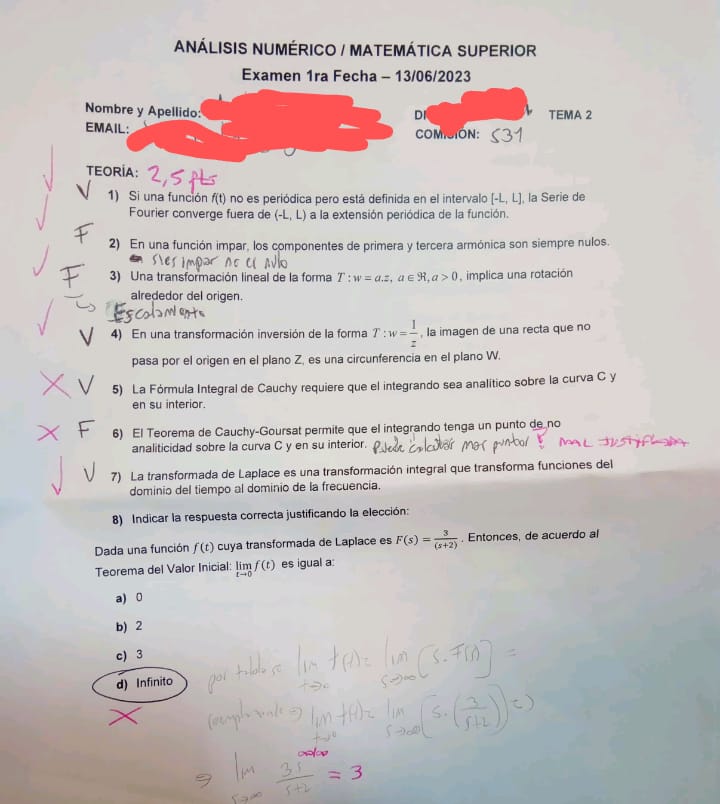 ANÁLISIS NUMÉRICO / MATEMÁTICA SUPERIOR
Examen 1ra Fecha – 13/06/2023
Nombre y Apellido:
EMAIL:
TEMA 2
COMISIÓN: S31
TEORÍA: 2,5 pts
V 1) Si una función f(t) no es periódica pero está definida en el intervalo [-L, L], la Serie de
Fourier converge fuera de (-L, L) a la extensión periódica de la función.
F 2) En una función impar, los componentes de primera y tercera armónica son siempre nulos.
si es impar no es nulo
F 3) Una transformación lineal de la forma T : w = a.z, a ∈ ℜ, a > 0, implica una rotación
alrededor del origen.
↳ Escalamiento
V 4) En una transformación inversión de la forma T : w = 1/z, la imagen de una recta que no
pasa por el origen en el plano Z, es una circunferencia en el plano W.
X V 5) La Fórmula Integral de Cauchy requiere que el integrando sea analítico sobre la curva C y
en su interior.
X F 6) El Teorema de Cauchy-Goursat permite que el integrando tenga un punto de no
analiticidad sobre la curva C y en su interior. Puede mas puntos ? MAL JUSTIFICADA
V 7) La transformada de Laplace es una transformación integral que transforma funciones del
dominio del tiempo al dominio de la frecuencia.
8) Indicar la respuesta correcta justificando la elección:
Dada una función f(t) cuya transformada de Laplace es F(s) = 3/(s+2). Entonces, de acuerdo al
Teorema del Valor Inicial: lim t→0 f(t) es igual a:
a) 0
b) 2
c) 3
d) Infinito
X
por lim t→0 f(t) = lim s→∞ [s.F(s)] =
⇒ lim t→0 f(t) = lim s→∞ (s.(3/(s+2))) =)
∞/∞
⇒ lim s→∞ 3s/(s+2) = 3